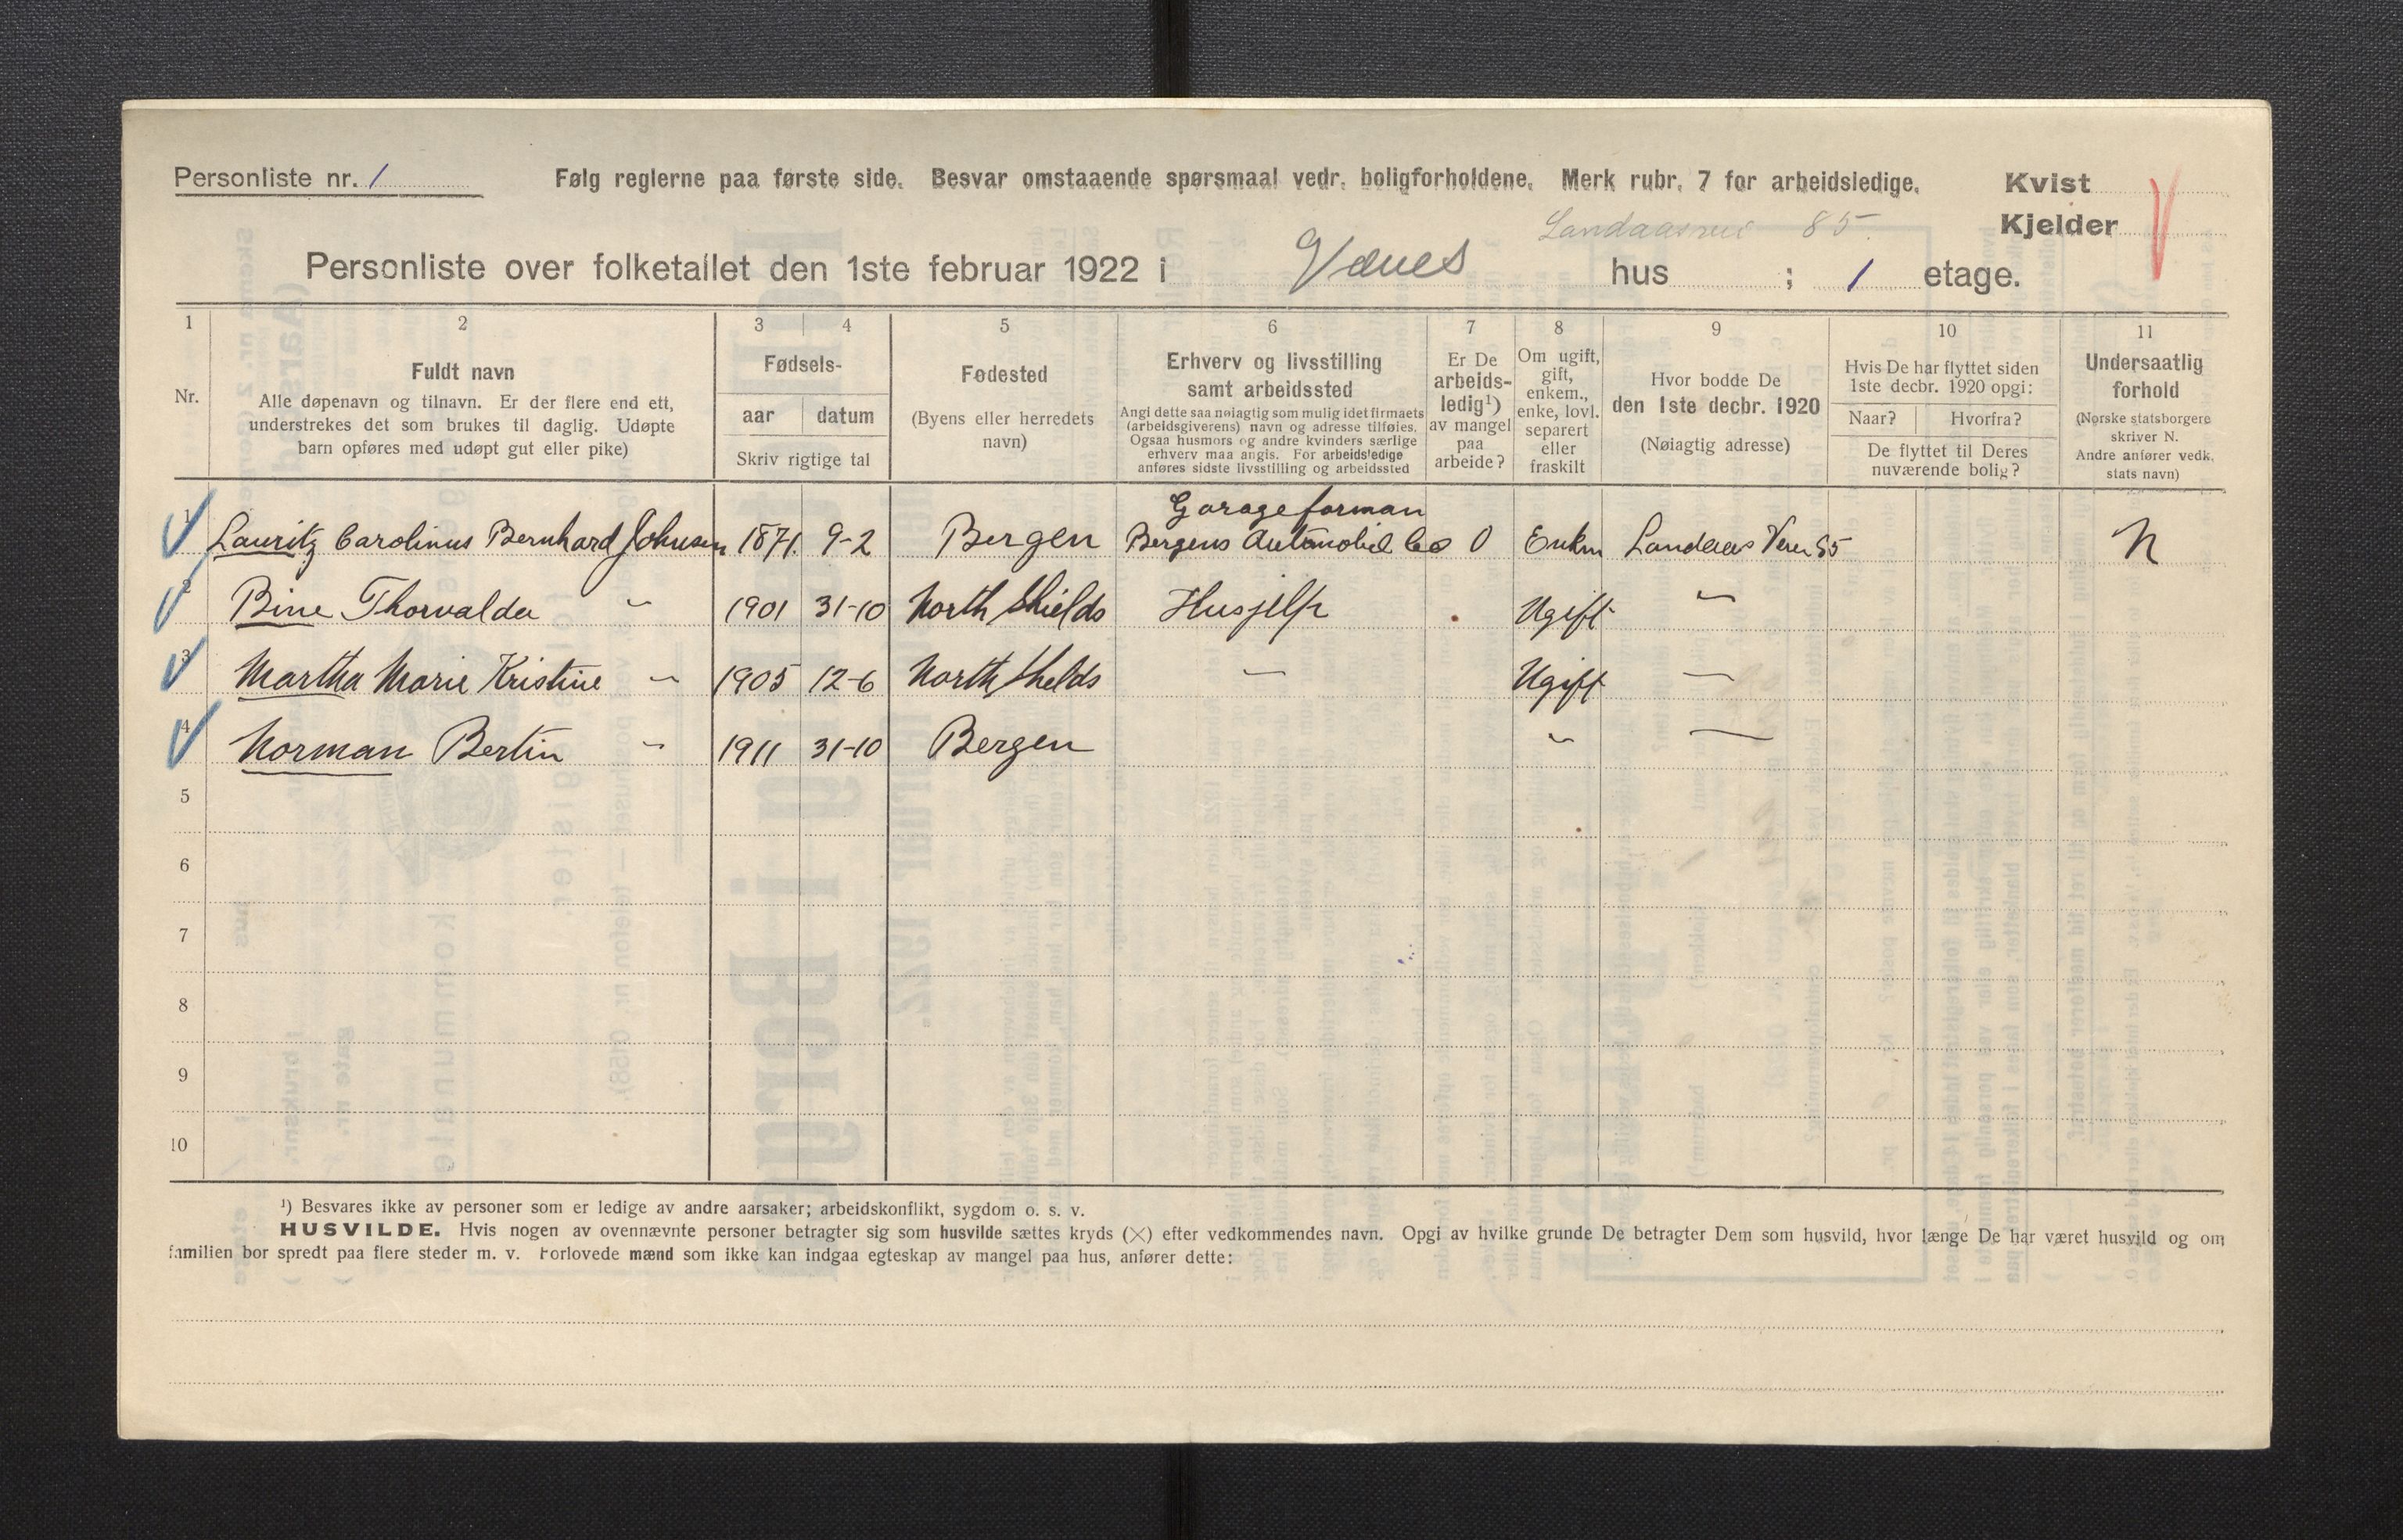 Personliste nr. 1
Følg reglerne paa første side. Besvar omstaaende spørsmaal vedr. boligforholdene. Merk rubr. 7 for arbeidsledige.
Kvist
Kjelder
Landaasvei 85
Personliste over folketallet den 1ste februar 1922 i hus ; 1 etage.
1 2 3 4 5 6 7 8 9 10 11
Nr.
Fuldt navn
Alle døpenavn og tilnavn. Er der flere end ett,
understrekes det som brukes til daglig. Udøpte
barn opføres med udøpt gut eller pike)
Fødsels-
aar datum
Skriv rigtige tal
Fødested
(Byens eller herredets
navn)
Erhverv og livsstilling
samt arbeidssted
Angi dette saa nøiagtig som mulig idet firmaets
(arbeidsgiverens) navn og adresse tilføies.
Ogsaa husmors og andre kvinders særlige
erhverv maa angis. For arbeidsledige
anføres sidste livsstilling og arbeidssted
Er De
arbeids-
ledig¹)
av mangel
paa
arbeide?
Om ugift,
gift,
enkem.,
enke, lovl.
separert
eller
fraskilt
Hvor bodde De
den 1ste decbr. 1920
(Nøiagtig adresse)
Hvis De har flyttet siden
1ste decbr. 1920 opgi:
Naar? Hvorfra?
De flyttet til Deres
nuværende bolig?
Undersaatlig
forhold
(Norske statsborgere
skriver N.
Andre anfører vedk.
stats navn)
Garageforman
1 Lauritz Carolinus Bernhard Johnsen 1871. 9-2 Bergen Bergens Automobil Co 0 Enkm Landaas Veien 85 N
2 Bine Thorvalda " 1901 31-10 North Shields Husjelp Ugift "
3 Martha Marie Kristine " 1905 12-6 North Shelds — Ugift —
4 Norman Bertin " 1911 31-10 Bergen " —
5
6
7
8
9
10
¹) Besvares ikke av personer som er ledige av andre aarsaker; arbeidskonflikt, sygdom o. s. v.
HUSVILDE. Hvis nogen av ovennævnte personer betragter sig som husvilde sættes kryds (×) efter vedkommendes navn. Opgi av hvilke grunde De betragter Dem som husvild, hvor længe De har været husvild og om
familien bor spredt paa flere steder m. v. Forlovede mænd som ikke kan indgaa egteskap av mangel paa hus, anfører dette: